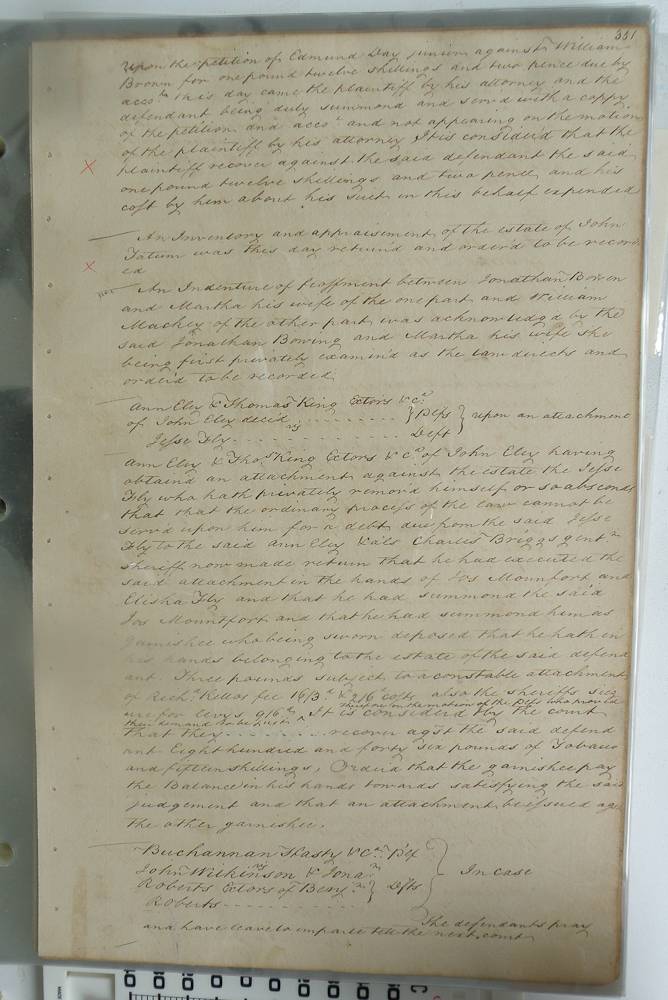 351
Upon the petition of Edmund Day junior against William
Brown for one pound twelve shillings and two pence due by
acco.t this day came the plaintiff by his attorney and the
defendant being duly summond and serv'd with a coppy
of the petition and acco.t and not appearing on the motion
of the plaintiff by his attorney It is consider'd that the
plaintiff recover against the said defendant the said
one pound twelve shillings and two pence and his
cost by him about his suit in this behalf expended
An Inventory and appraisement of the estate of John
Tatum was this day return'd and order'd to be record
ed
An Indenture of feoffment between Jonathan Bowen
and Martha his wife of the one part and William
Mackey of the other part was acknowledg'd by the
said Jonathan Bowing and Martha his wife she
being first privately examin'd as the law directs and
order'd to be recorded
Ann Eley & Thomas King Extors &c.a
of John Eley decd Plfs upon an attachment
Jesse Fly Deft
Ann Eley & Tho.s King Extors &c.a of John Eley having
obtaind an attachment against the estate the Jesse
Fly who hath privately remov'd himself or so absconds
that that the ordinary process of the law cannot be
serv'd upon him for a debt due from the said Jesse
Fly to the said Ann Eley &als Charles Briggs gent.n
sheriff now made return that he had executed the
said attachment in the hands of Jos Mountfort and
Elisha Fly and that he had summond the said
Jos Mountfort and that he had summond him as
garnishee who being sworn deposed that he hath in
his hands belonging to the estate of the said defend
ant Three pounds subject to a constable attachment
of Rich.d Kellos fee 16/3.d & 2/6.d costs also the sheriffs
fee for levy.g 9/6.d thereupon on the motion of the Plfs who prov'd
their demand to be just It is considered by the court
that they recover agst the said defend
ant Eight hundred and forty six pounds of Tobacco
and fifteen shillings, Order'd that the garnishee pay
the Balance in his hands towards satisfying the said
judgement and that an attachment be issued ag.t
the other garnishee.
Buchannan Hasty &C.o Plf
John Wilkinson & Jona.n
Roberts Extors of Benj.n Defts In case
Roberts
The defendants pray
and have leave to imparle till the next court